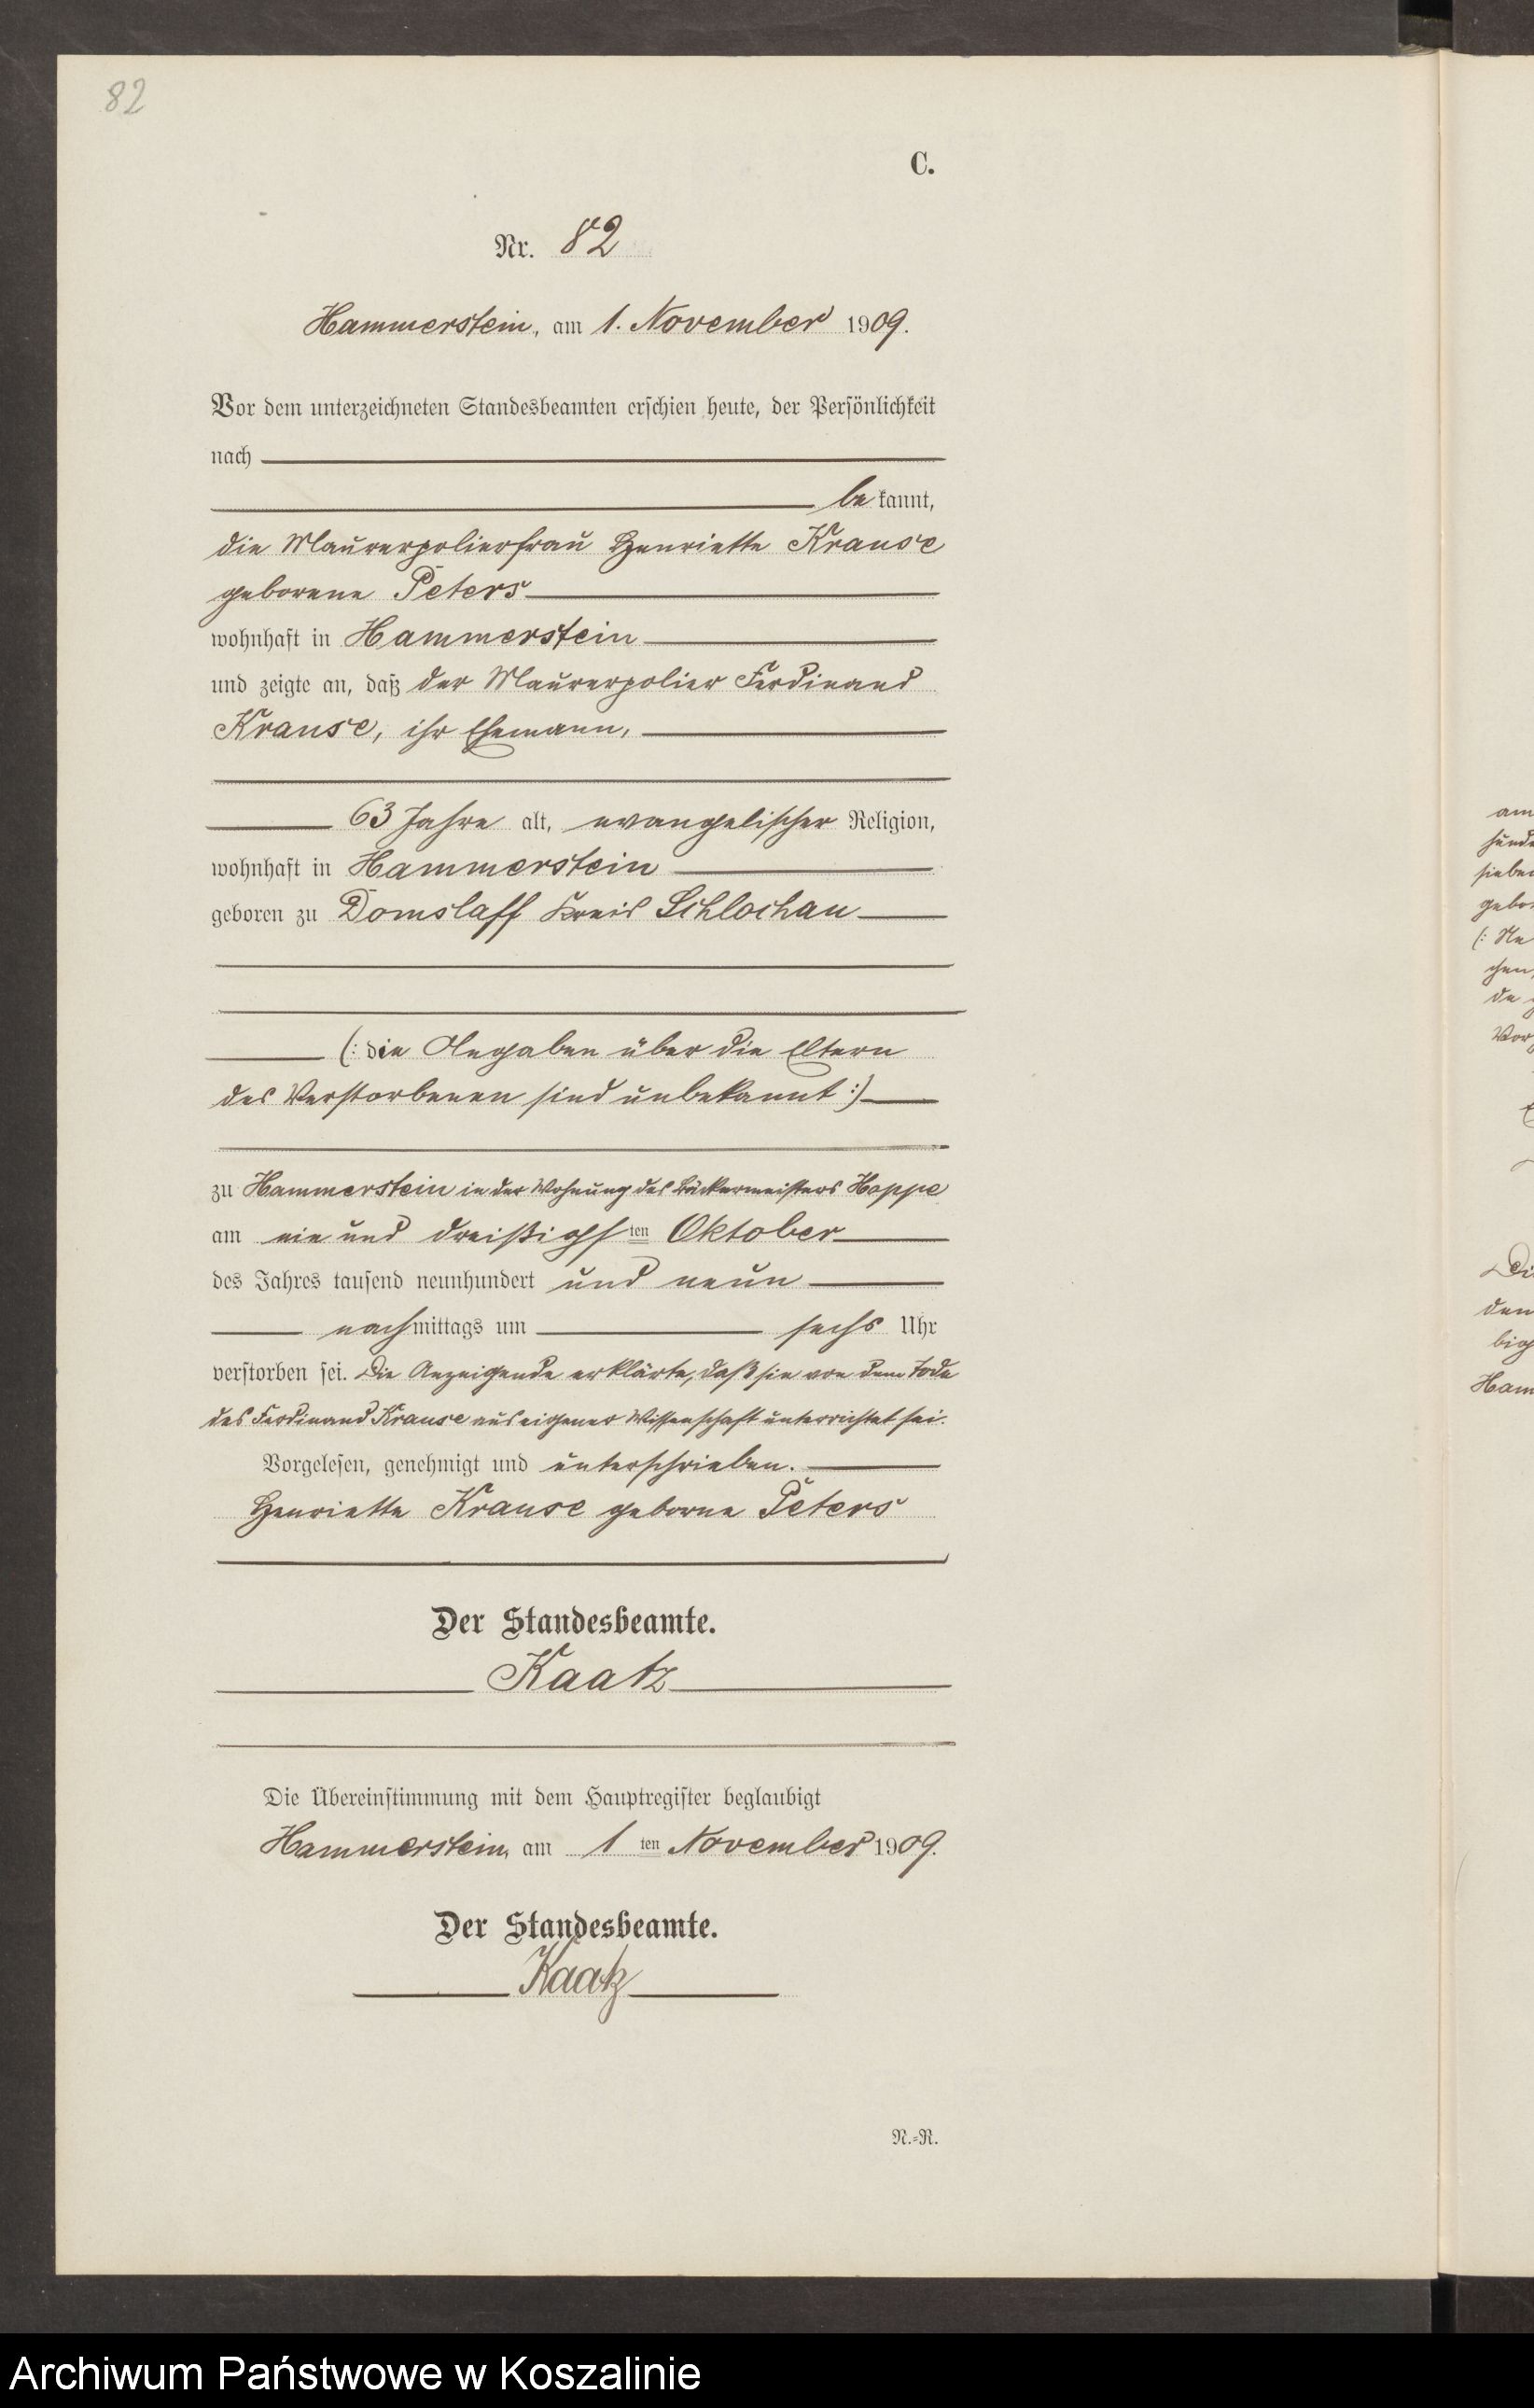 82
C.
Nr. 82
Hammerstein, am 1. November 1909.
Vor dem unterzeichneten Standesbeamten erschien heute, der Persönlichkeit
nach
be kannt,
die Maurerpolierfrau Henriette Krause
geborene Peters
wohnhaft in Hammerstein
und zeigte an, daß der Maurerpolier Ferdinand
Krause, ihr Ehemann,
63 Jahre alt, evangelischer Religion,
wohnhaft in Hammerstein
geboren zu Domslaff Kreis Schlochau
(: die Angaben über die Eltern
des Verstorbenen sind unbekannt :)
zu Hammerstein in der Wohnung des Bäckermeisters Hoppe
am ein und dreißigsten Oktober
des Jahres tausend neunhundert und neun
nachmittags um sechs Uhr
verstorben sei. Die Anzeigende erklärte, daß sie von dem Tode
des Ferdinand Krause aus eigener Wissenschaft unterrichtet sei.
Vorgelesen, genehmigt und unterschrieben.
Henriette Krause geborne Peters
Der Standesbeamte.
Kaatz
Die Übereinstimmung mit dem Hauptregister beglaubigt
Hammerstein, am 1 ten November 1909.
Der Standesbeamte.
Kaatz
N.=R.
Archiwum Państwowe w Koszalinie